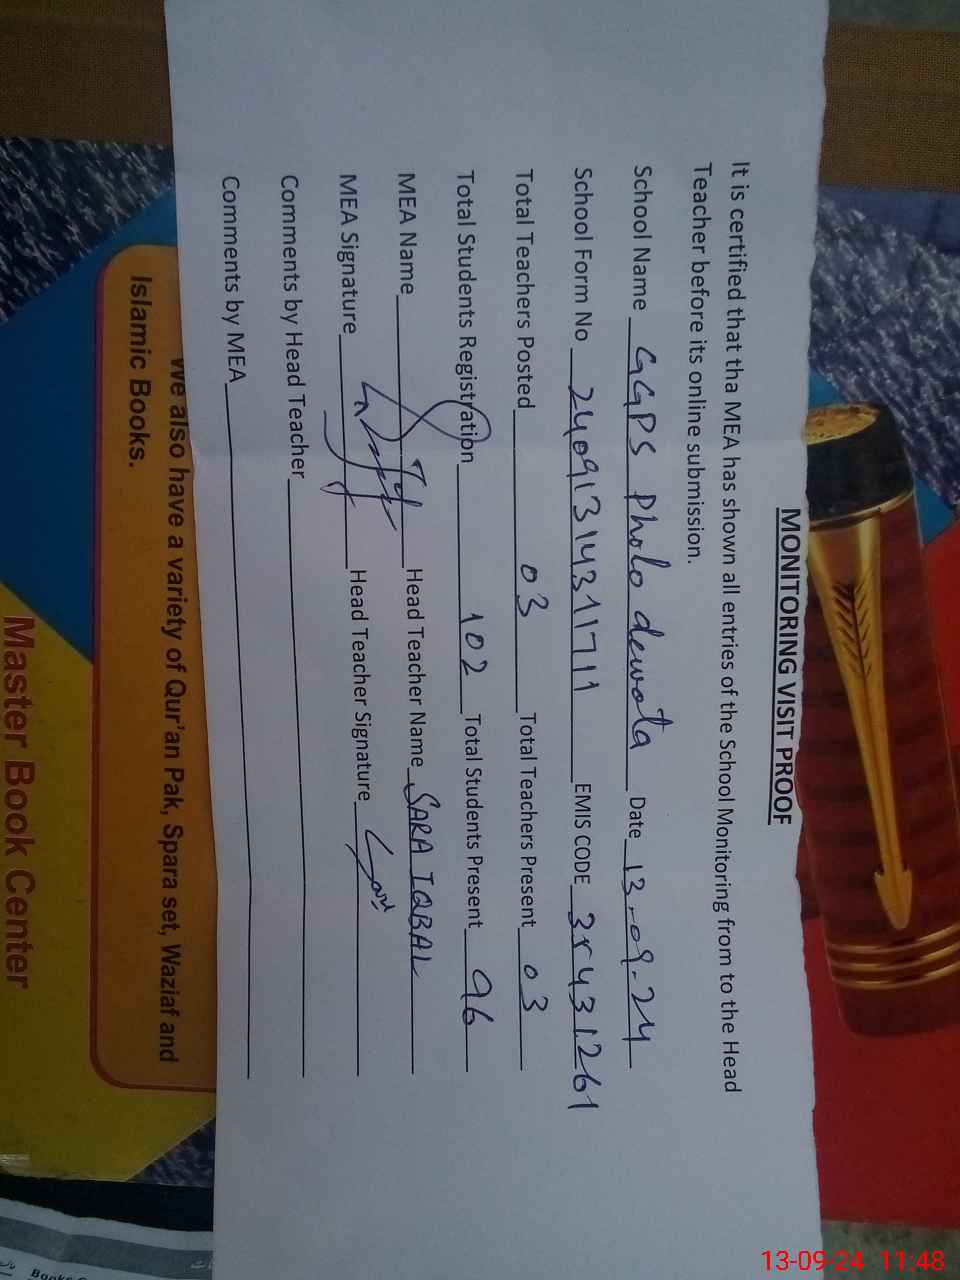 MONITORING VISIT PROOF
It is certified that tha MEA has shown all entries of the School Monitoring from to the Head
Teacher before its online submission.
School Name GGPS Pholo dewata Date 13-09-24
School Form No 24091314311711 EMIS CODE 35431261
Total Teachers Posted 03 Total Teachers Present 03
Total Students Registration 102 Total Students Present 96
MEA Name Head Teacher Name SARA IQBAL
MEA Signature Head Teacher Signature
Comments by Head Teacher
Comments by MEA
We also have a variety of Qur'an Pak, Spara set, Waziaf and
Islamic Books.
Master Book Center
13-09-24 11:48